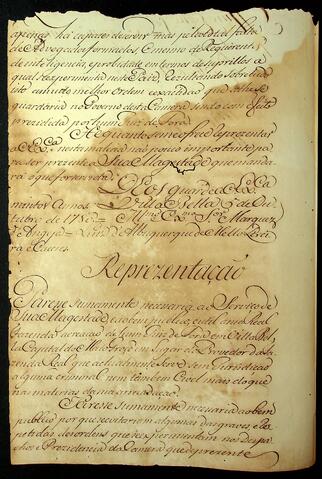 a capaz de servir mas pelo total falta
de Advogados formados, e mesmo de Requerentes
de inteligencia, e probidade em termos de suprillos a
qual se experimenta neste Paiz. Rezultando sobretudo
isto em muito melhor ordem e exacidaõ que athe se
guardaria no Governo desta Camera sendo com effeito
prezidida por hum Juiz de Fora.
He quanto se me offrece Reprezentar
a V. Ex.ca nesta materia não pouco importante pa
ra ser prezente a Sua Magestade que manda
rá o que for servida.
Deos guarde a V. Ex.ca
muitos annos. Villa Bella 5 de Ou
tubro de 178 Ill.mo Ex.mo Sor. Marquez
de Angeja Luis de Albuquerque de Mello Perei
ra e Caceres.
Reprezentaçaõ
Parese sumamente necesario ao Serviço de
Sua Magestade e ao bem publico, e util a sua Real
Fazenda a creacaõ de hum Juiz de Fora em Villa Bella,
da Capital do Mato Groço em lugar do Provedor da Fa
zenda Real que actualmente Serve sem Jurisdicaõ
alguma criminal nem tambem Civel mais do que
nas materias da sua arrecadaçaõ.
Parese sumamente necesaria ao bem
publico por que se evitariam algumas das graves, e re
petidas desordens que se experimentaõ nos despa
chos e Providencias da Camera que de prezente